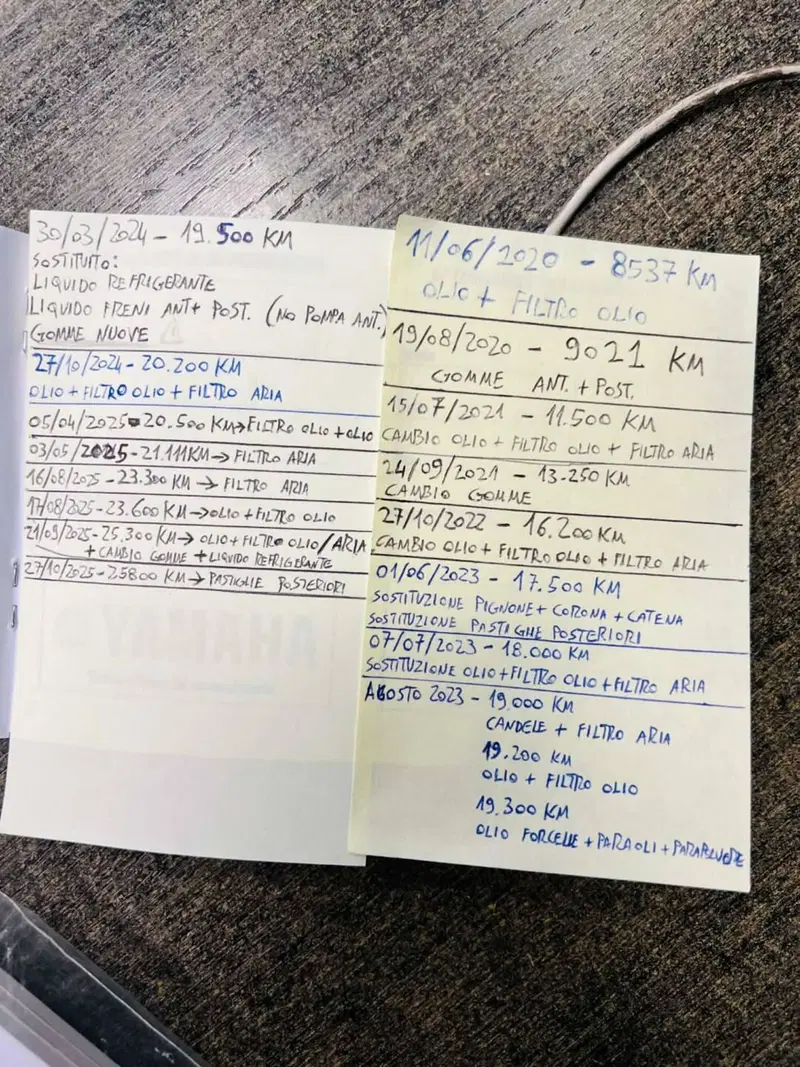 30/03/2024 - 19.500 KM
SOSTITUITO:
LIQUIDO REFRIGERANTE
LIQUIDO FRENI ANT+ POST. (NO POMPA ANT.)
GOMME NUOVE
27/10/2024 - 20.200 KM
OLIO + FILTRO OLIO + FILTRO ARIA
05/04/2025 - 20.500 KM → FILTRO OLIO + OLIO
03/05/2025 - 21.111 KM → FILTRO ARIA
16/08/2025 - 23.300 KM → FILTRO ARIA
17/08/2025 - 23.600 KM → OLIO + FILTRO OLIO
21/09/2025 - 25.300 KM → OLIO + FILTRO OLIO/ARIA
+ CAMBIO GOMME + LIQUIDO REFRIGERANTE
27/10/2025 - 25800 KM → PASTIGLIE POSTERIORI
11/06/2020 - 8537 KM
OLIO + FILTRO OLIO
19/08/2020 - 9021 KM
GOMME ANT. + POST.
15/07/2021 - 11.500 KM
CAMBIO OLIO + FILTRO OLIO + FILTRO ARIA
24/09/2021 - 13.250 KM
CAMBIO GOMME
27/10/2022 - 16.200 KM
CAMBIO OLIO + FILTRO OLIO + FILTRO ARIA
01/06/2023 - 17.500 KM
SOSTITUZIONE PIGNONE + CORONA + CATENA
SOSTITUZIONE PASTIGHE POSTERIORI
07/07/2023 - 18.000 KM
SOSTITUZIONE OLIO + FILTRO OLIO + FILTRO ARIA
AGOSTO 2023 - 19.000 KM
CANDELE + FILTRO ARIA
19.200 KM
OLIO + FILTRO OLIO
19.300 KM
OLIO FORCELLE + PARAOLI + PARAPOLVERE